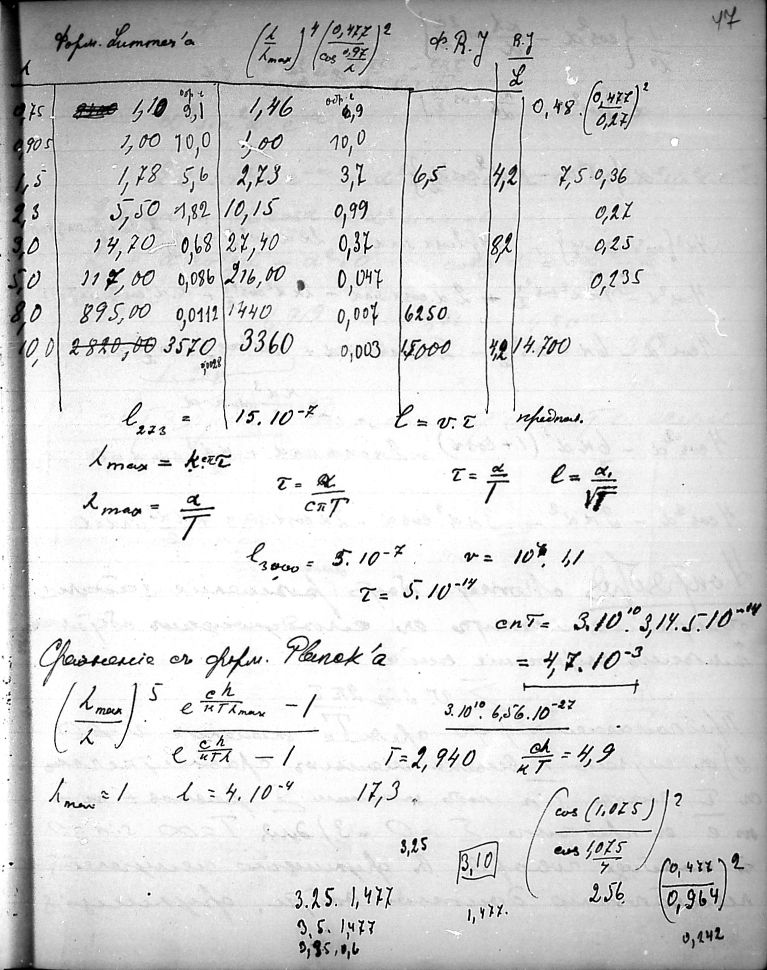 47
Форм. Lummer'а (λ/λmax)^4 (0,477/cos 0,97/λ)^2 Ф. R. J R.J/L
λ
0,75 1,10 обр. 9,1 1,46 обр. 6,9 0,48 · (0,477/0,27)^2
0,905 1,00 10,0 1,00 10,0
1,5 1,78 5,6 2,73 3,7 6,5 4,2 7,5 · 0,36
2,3 5,50 1,82 10,15 0,99 0,27
3,0 14,70 0,68 27,40 0,37 8,2 0,25
5,0 117,00 0,086 216,00 0,047 0,235
8,0 895,00 0,0112 1440 0,007 6250
10,0 2820,00 3570 0,0028 3360 0,003 15000 4,2 14.700
l273 = 15.10^-7 l = v.τ предпол.
λmax = к·cπτ
λmax = α/T τ = α/cπT τ = α/T l = α1/√T
l3000 = 5.10^-7 v = 10^7. 1,1
τ = 5.10^-14
cπT = 3.10^10. 3,14.5.10^-14
Сравненіе съ форм. Planck'а = 4,7.10^-3
(λmax/λ)^5 (e^(ch/кTλmax) − 1)/(e^(ch/кTλ) − 1) 3.10^10. 6,56.10^-27
T = 2,940 ch/кT = 4,9
λmax = 1 l = 4.10^-4 17,3
(cos (1,075)/cos 1,075/4)^2
3,25
3,10
256 (0,477/0,964)^2
3.25. 1,477
1,477.
3,5. 1,477
0,242
3,85. 0,6